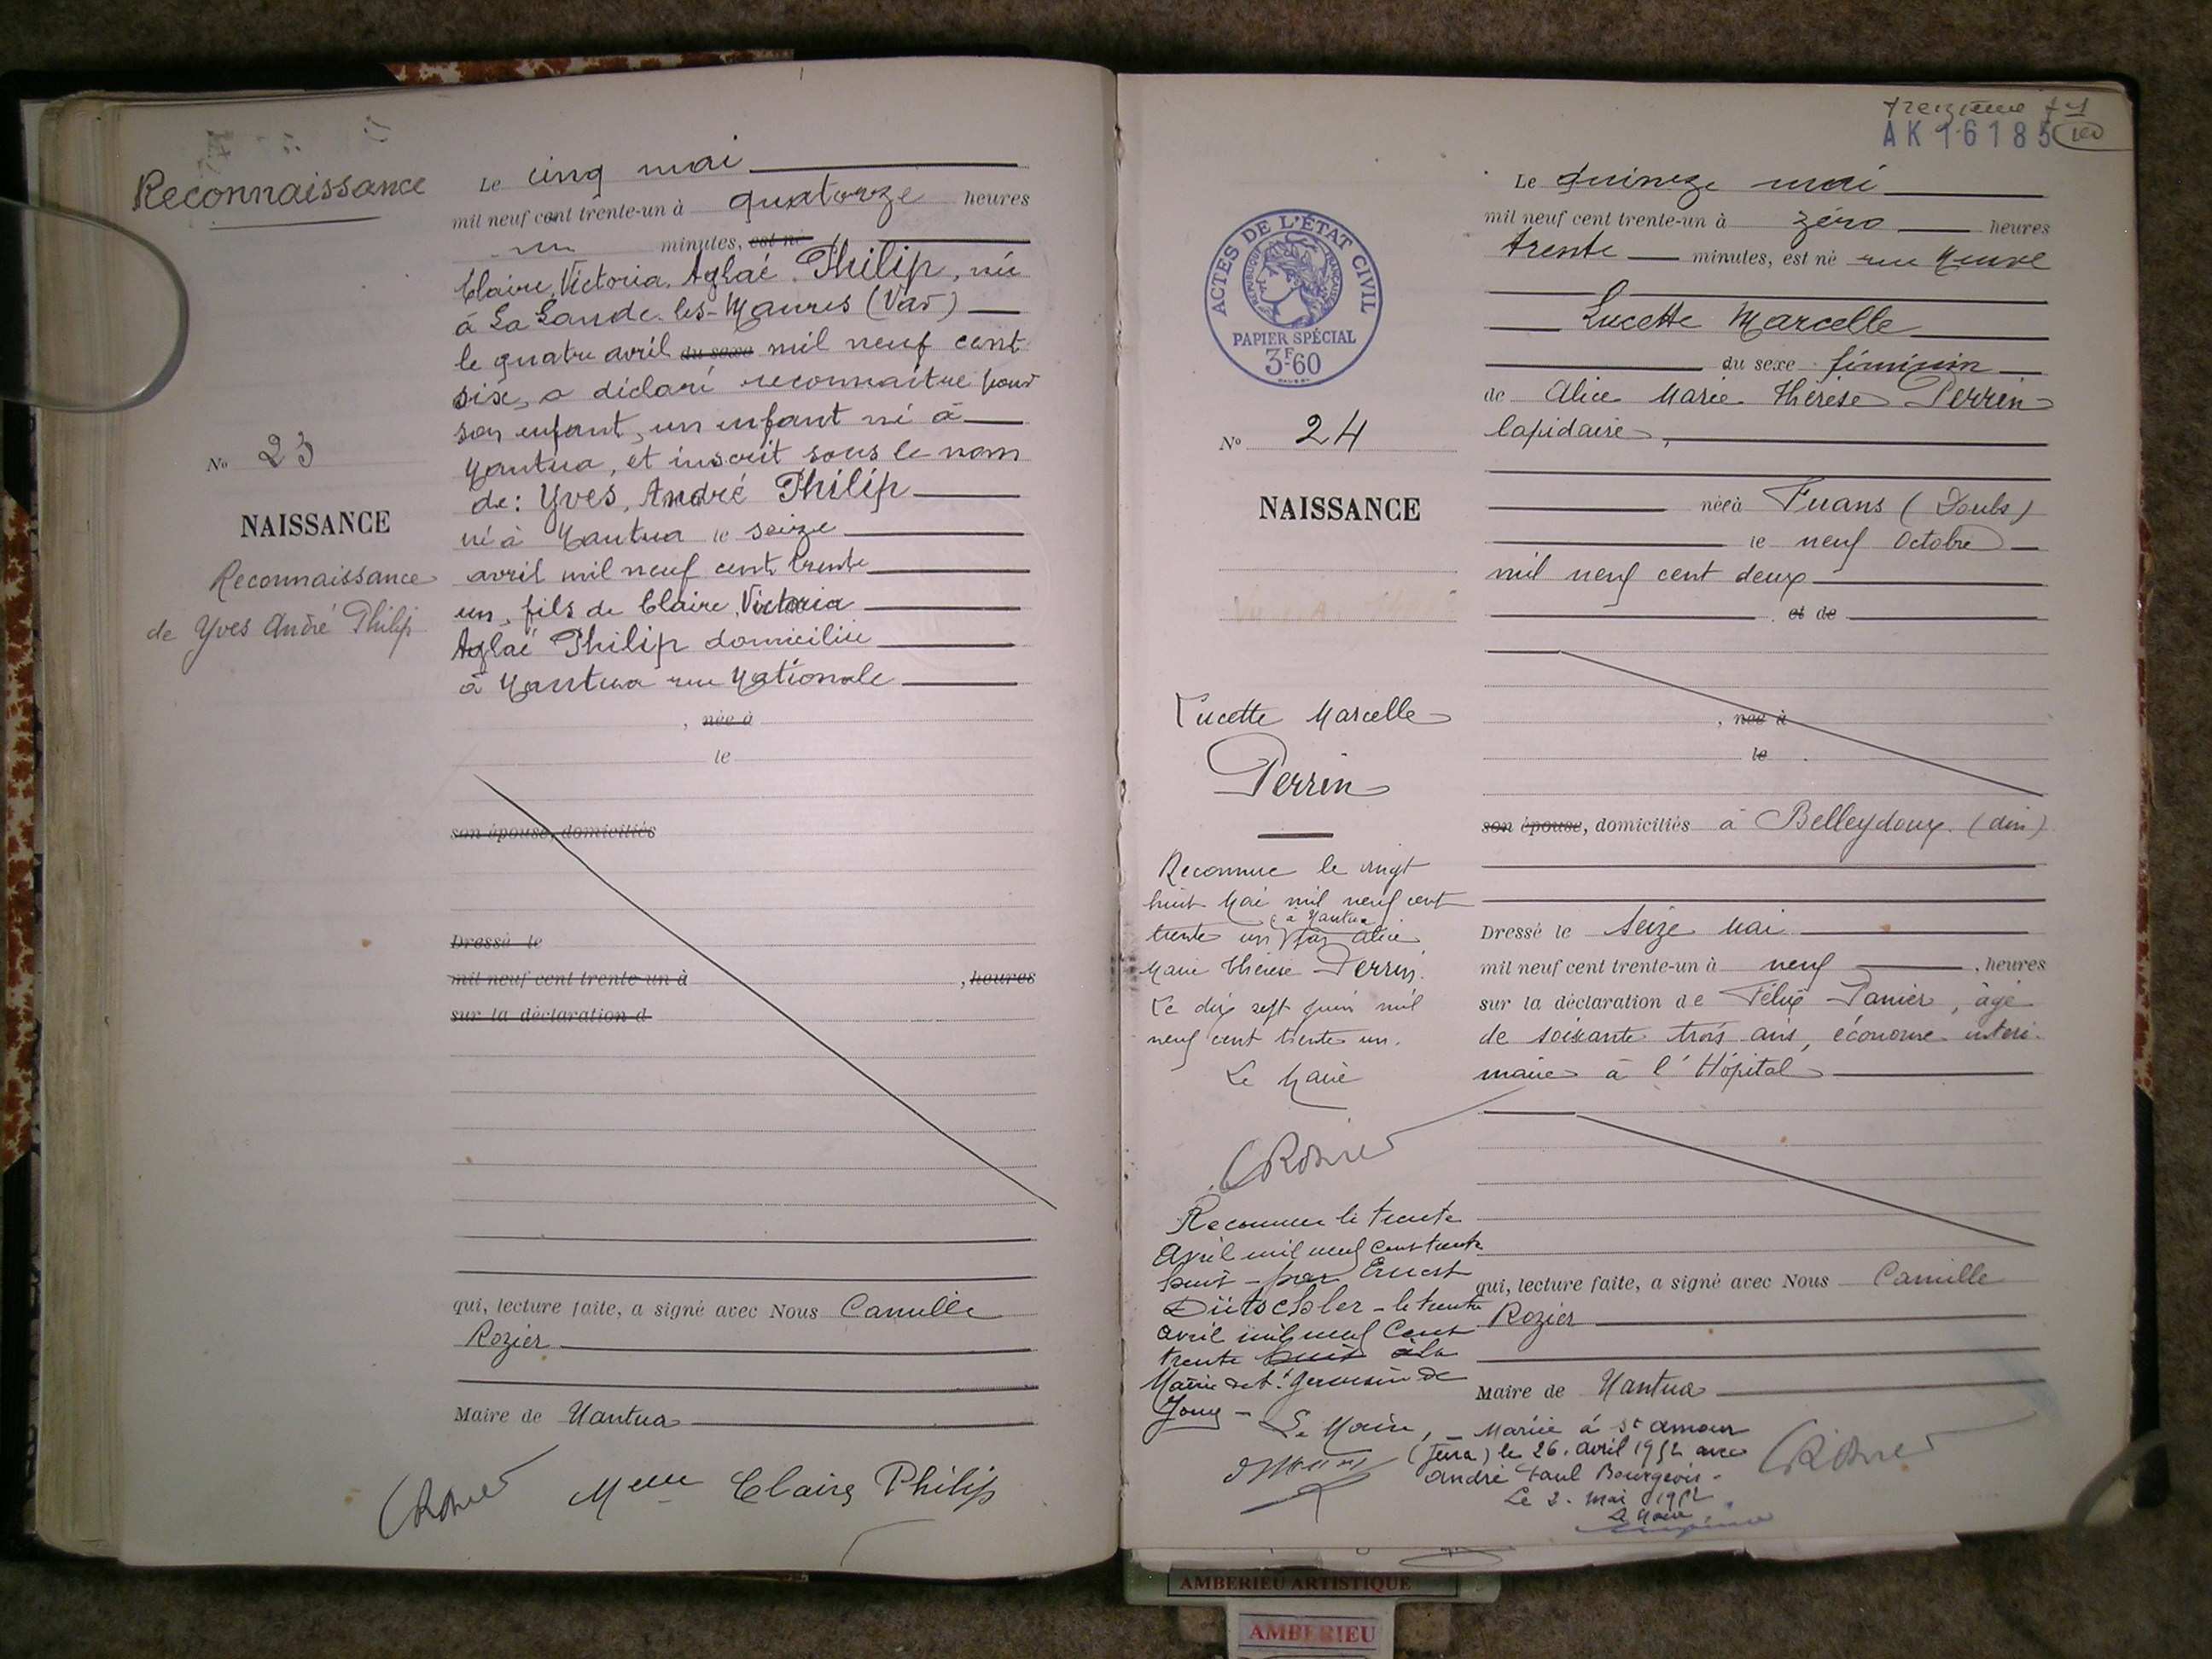 Reconnaissance
Le cinq mai
mil neuf cent trente-un à quatorze heures
un minutes, est né
Claire, Victoria, Aglaé Philip, née
à La Londe-les-Maures (Var)
le quatre avril du sexe mil neuf cent
six, a déclaré reconnaître pour
son enfant, un enfant né à
Nantua, et inscrit sous le nom
de: Yves, André Philip
né à Nantua le seize
avril mil neuf cent trente
un, fils de Claire, Victoria
Aglaé Philip domiciliée
à Nantua rue Nationale
, née à
le
son épouse, domiciliés
Dressé le
mil neuf cent trente-un à , heures
sur la déclaration d
qui, lecture faite, a signé avec Nous Camille
Rozier
Maire de Nantua
CRozier Melle Claire Philip
No 23
NAISSANCE
Reconnaissance
de Yves André Philip
treizième
AK 16185
ACTES DE L'ÉTAT CIVIL
RÉPUBLIQUE FRANÇAISE
PAPIER SPÉCIAL
3F.60
No 24
NAISSANCE
Lucette Marcelle
Perrin
Reconnue le vingt
huit Mai mil neuf cent
à Nantua
trente un par Alice
Marie Thérèse Perrin.
Le dix sept juin mil
neuf cent trente un.
Le Maire
CRozier
Reconnue le trente
Avril mil neuf cent trente
huit - par Ernest
Dütschler - le trente
avril mil neuf cent
trente huit à la
Mairie de St. Germain de
Joux - Le Maire,
Le quinze mai
mil neuf cent trente-un à zéro heures
trente minutes, est né rue Neuve
Lucette Marcelle
du sexe féminin
de Alice Marie Thérèse Perrin
lapidaire,
née à Fuans (Doubs)
le neuf Octobre
mil neuf cent deux
et de
, née à
le
son épouse, domiciliés à Belleydoux (Ain)
Dressé le seize Mai
mil neuf cent trente-un à neuf , heures
sur la déclaration de Félix Panier, âgé
de soixante trois ans, économe intéri-
maire à l'Hôpital
qui, lecture faite, a signé avec Nous Camille
Rozier
Maire de Nantua
CRozier
- Mariée à St Amour
(Jura) le 26 avril 1952 avec
André Paul Bourgeois -
Le 2 Mai 1952
Le Maire
AMBERIEU ARTISTIQUE
AMBERIEU